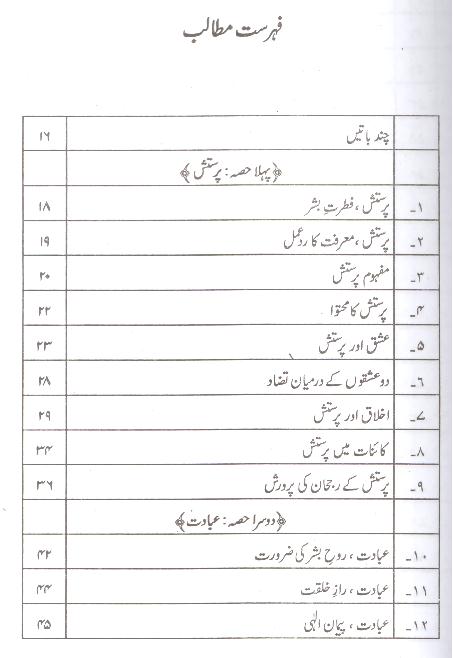 فہرست مطالب
چند باتیں ۱۶
﴿پہلا حصہ: پرستش﴾
۱۔ پرستش، فطرتِ بشر ۱۸
۲۔ پرستش، معرفت کا ردِعمل ۱۹
۳۔ مفہوم پرستش ۲۰
۴۔ پرستش کا محتوا ۲۲
۵۔ عشق اور پرستش ۲۳
۶۔ دو عشقوں کے درمیان تضاد ۲۸
۷۔ اخلاق اور پرستش ۲۹
۸۔ کائنات میں پرستش ۳۴
۹۔ پرستش کے رجحان کی پرورش ۳۶
﴿دوسرا حصہ: عبادت﴾
۱۰۔ عبادت، روحِ بشر کی ضرورت ۴۲
۱۱۔ عبادت، رازِ خلقت ۴۴
۱۲۔ عبادت، پیمان الٰہی ۴۵